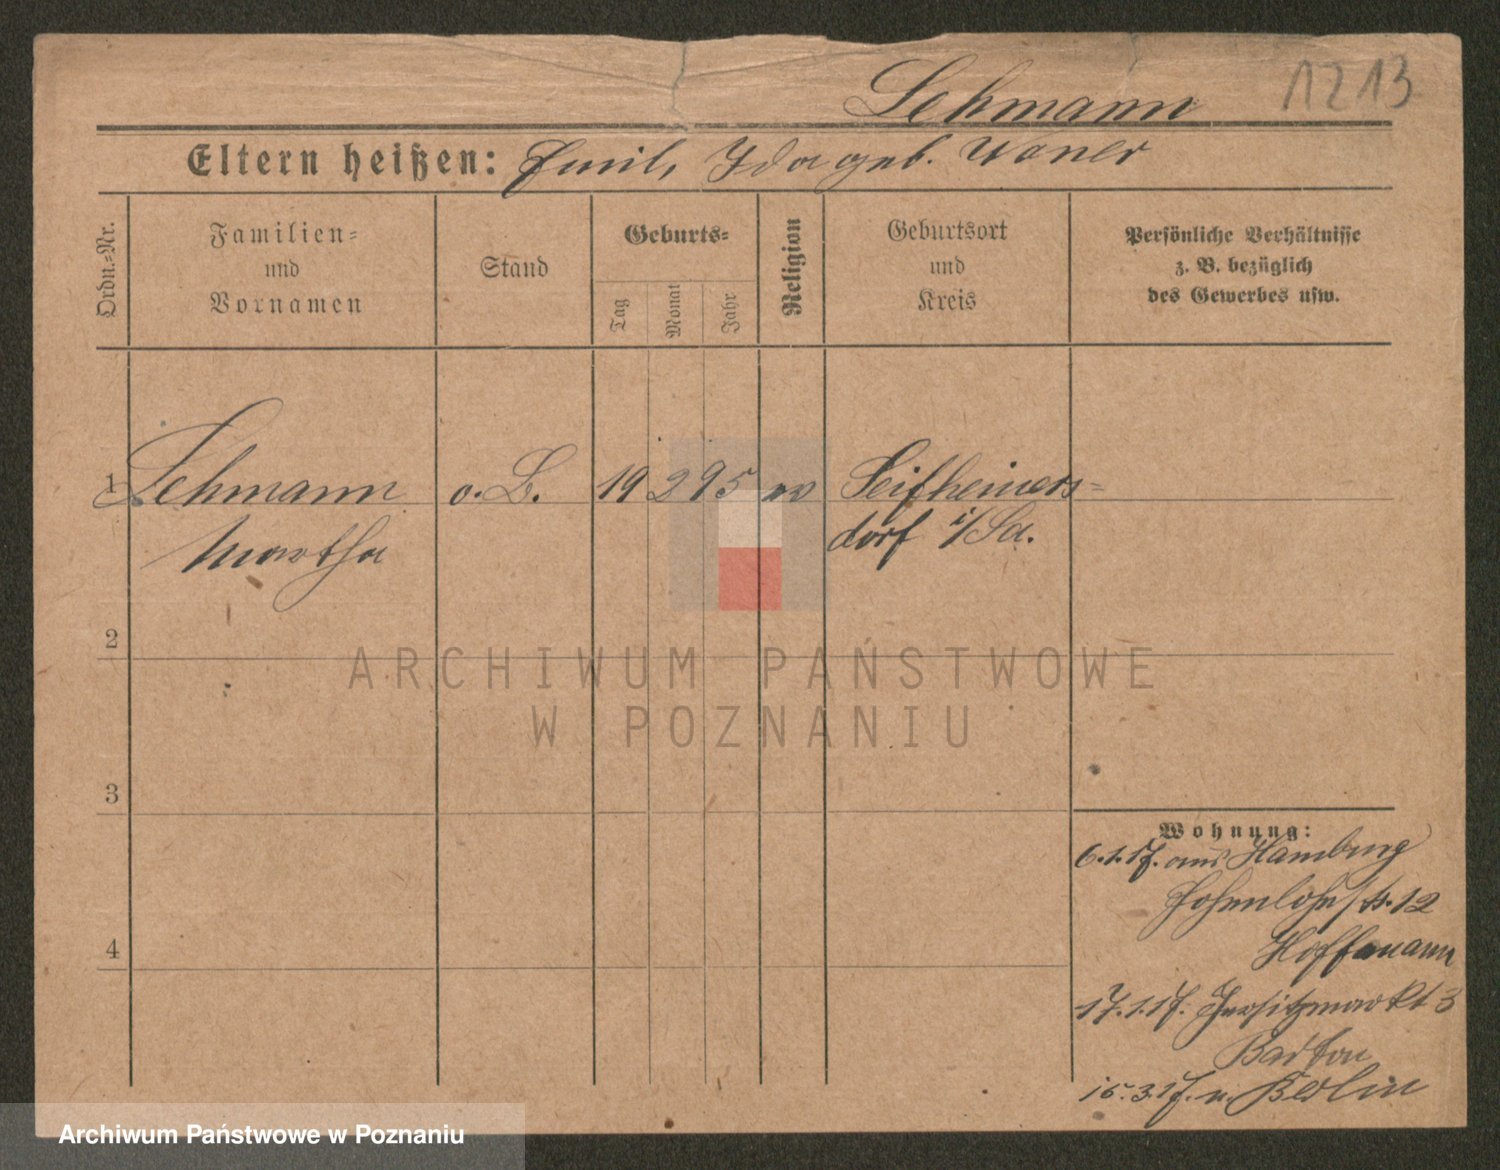 1213
Lehmann
Eltern heißen: Emil, Ida geb.
Ordn.-Nr.
Familien-
und
Vornamen
Stand
Geburts-
Tag
Monat
Jahr
Religion
Geburtsort
und
Kreis
Persönliche Verhältnisse
z. B. bezüglich
des Gewerbes usw.
1 Lehmann o. B. 19 2 95 Seifheiners-
Martha dorf i/Sa.
2
ARCHIWUM PAŃSTWOWE
W POZNANIU
3
Wohnung:
6.1.17. aus Hamburg
Hohenlohestr. 12
Hoffmann
4
17.1.17. Jersitzmarkt 3
15.3.17. n. Berlin
Archiwum Państwowe w Poznaniu